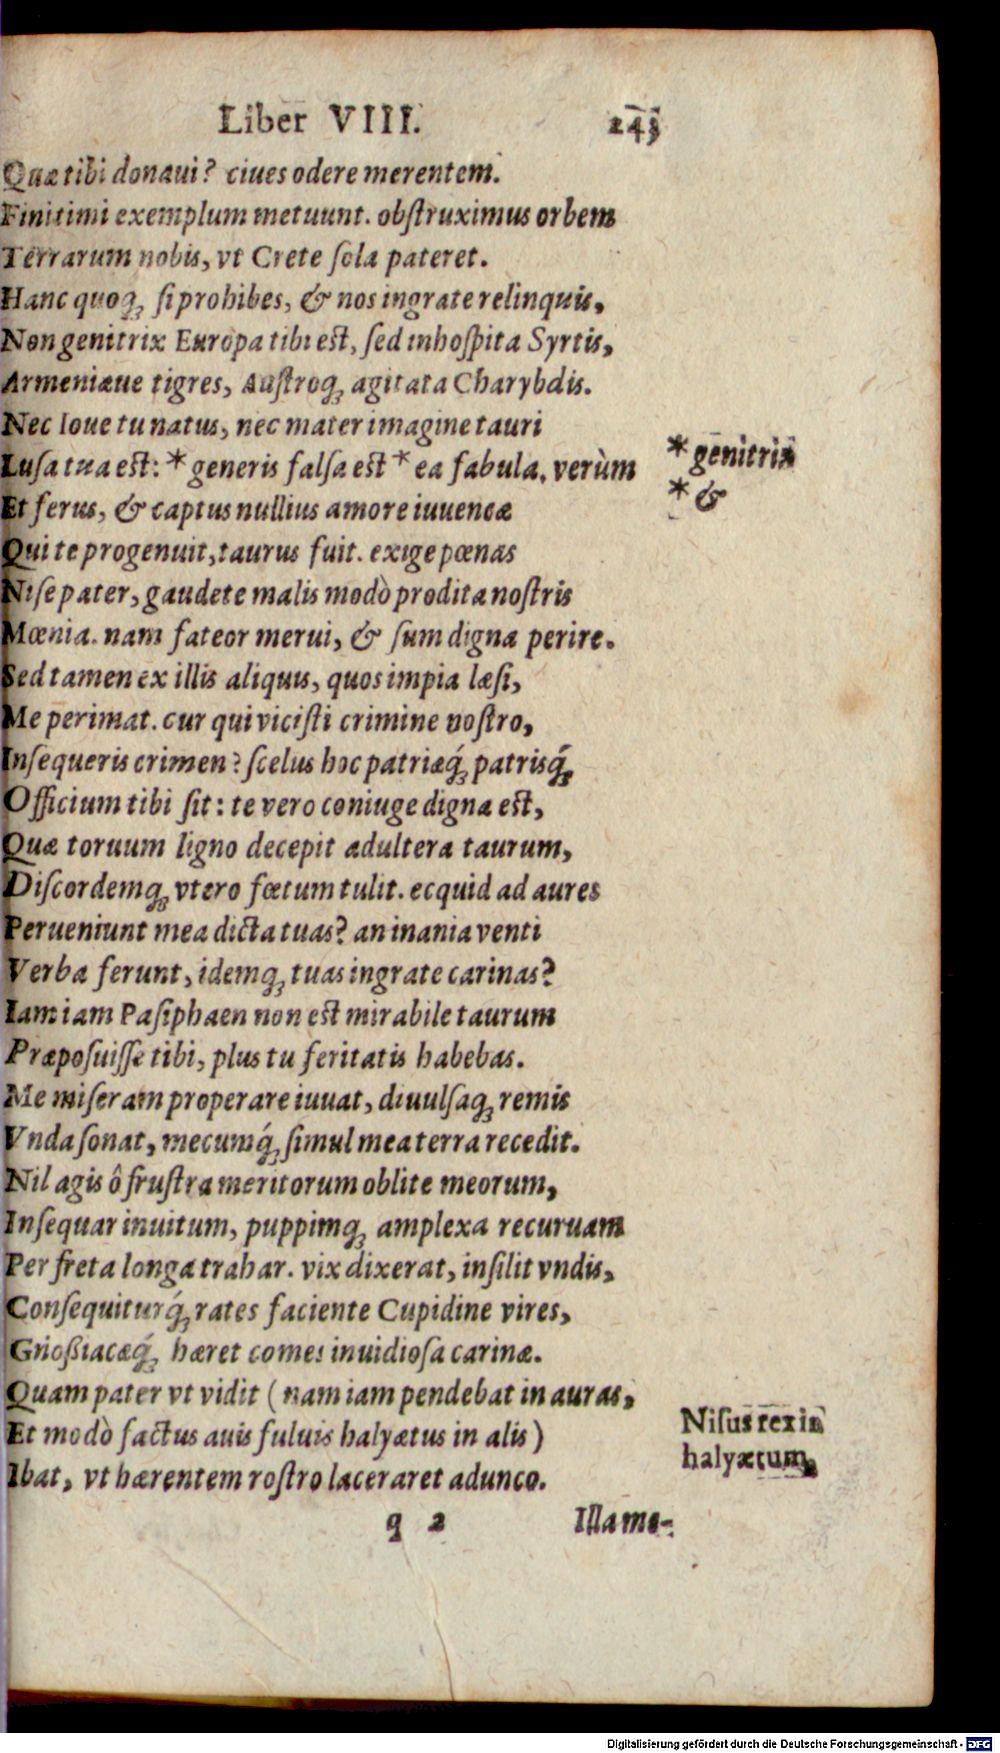 Liber VIII. 243
Quæ tibi donaui? ciues odere merentem.
Finitimi exemplum metuunt. obſtruximus orbem
Terrarum nobis, vt Crete ſola pateret.
Hanc quoq; ſi prohibes, & nos ingrate relinquis,
Non genitrix Europa tibi eſt, ſed inhoſpita Syrtis,
Armeniæue tigres, Auſtroq; agitata Charybdis.
Nec Ioue tu natus, nec mater imagine tauri
Luſa tua eſt: *generis falſa eſt *ea fabula, verùm
*genitrix
*&
Et ferus, & captus nullius amore iuuencæ
Qui te progenuit, taurus fuit. exige pœnas
Niſe pater, gaudete malis modò prodita noſtris
Mœnia. nam fateor merui, & ſum digna perire.
Sed tamen ex illis aliquis, quos impia læſi,
Me perimat. cur qui viciſti crimine noſtro,
Inſequeris crimen? ſcelus hoc patriæq́; patrisq́;
Officium tibi ſit: te vero coniuge digna eſt,
Quæ toruum ligno decepit adultera taurum,
Diſcordemq; vtero fœtum tulit. ecquid ad aures
Perueniunt mea dicta tuas? an inania venti
Verba ferunt, idemq; tuas ingrate carinas?
Iam iam Paſiphaen non eſt mirabile taurum
Præpoſuiſſe tibi, plus tu feritatis habebas.
Me miſeram properare iuuat, diuulſaq; remis
Vnda ſonat, mecumq́; ſimul mea terra recedit.
Nil agis ô fruſtra meritorum oblite meorum,
Inſequar inuitum, puppimq; amplexa recuruam
Per freta longa trahar. vix dixerat, inſilit vndis,
Conſequiturq́; rates faciente Cupidine vires,
Gnoßiacæq́; hæret comes inuidioſa carinæ.
Quam pater vt vidit (nam iam pendebat in auras,
Et modò factus auis fuluis halyætus in alis)
Nisus rex in
halyætum.
Ibat, vt hærentem roſtro laceraret adunco.
q 2 Illa me-
Digitalisierung gefördert durch die Deutsche Forschungsgemeinschaft - DFG